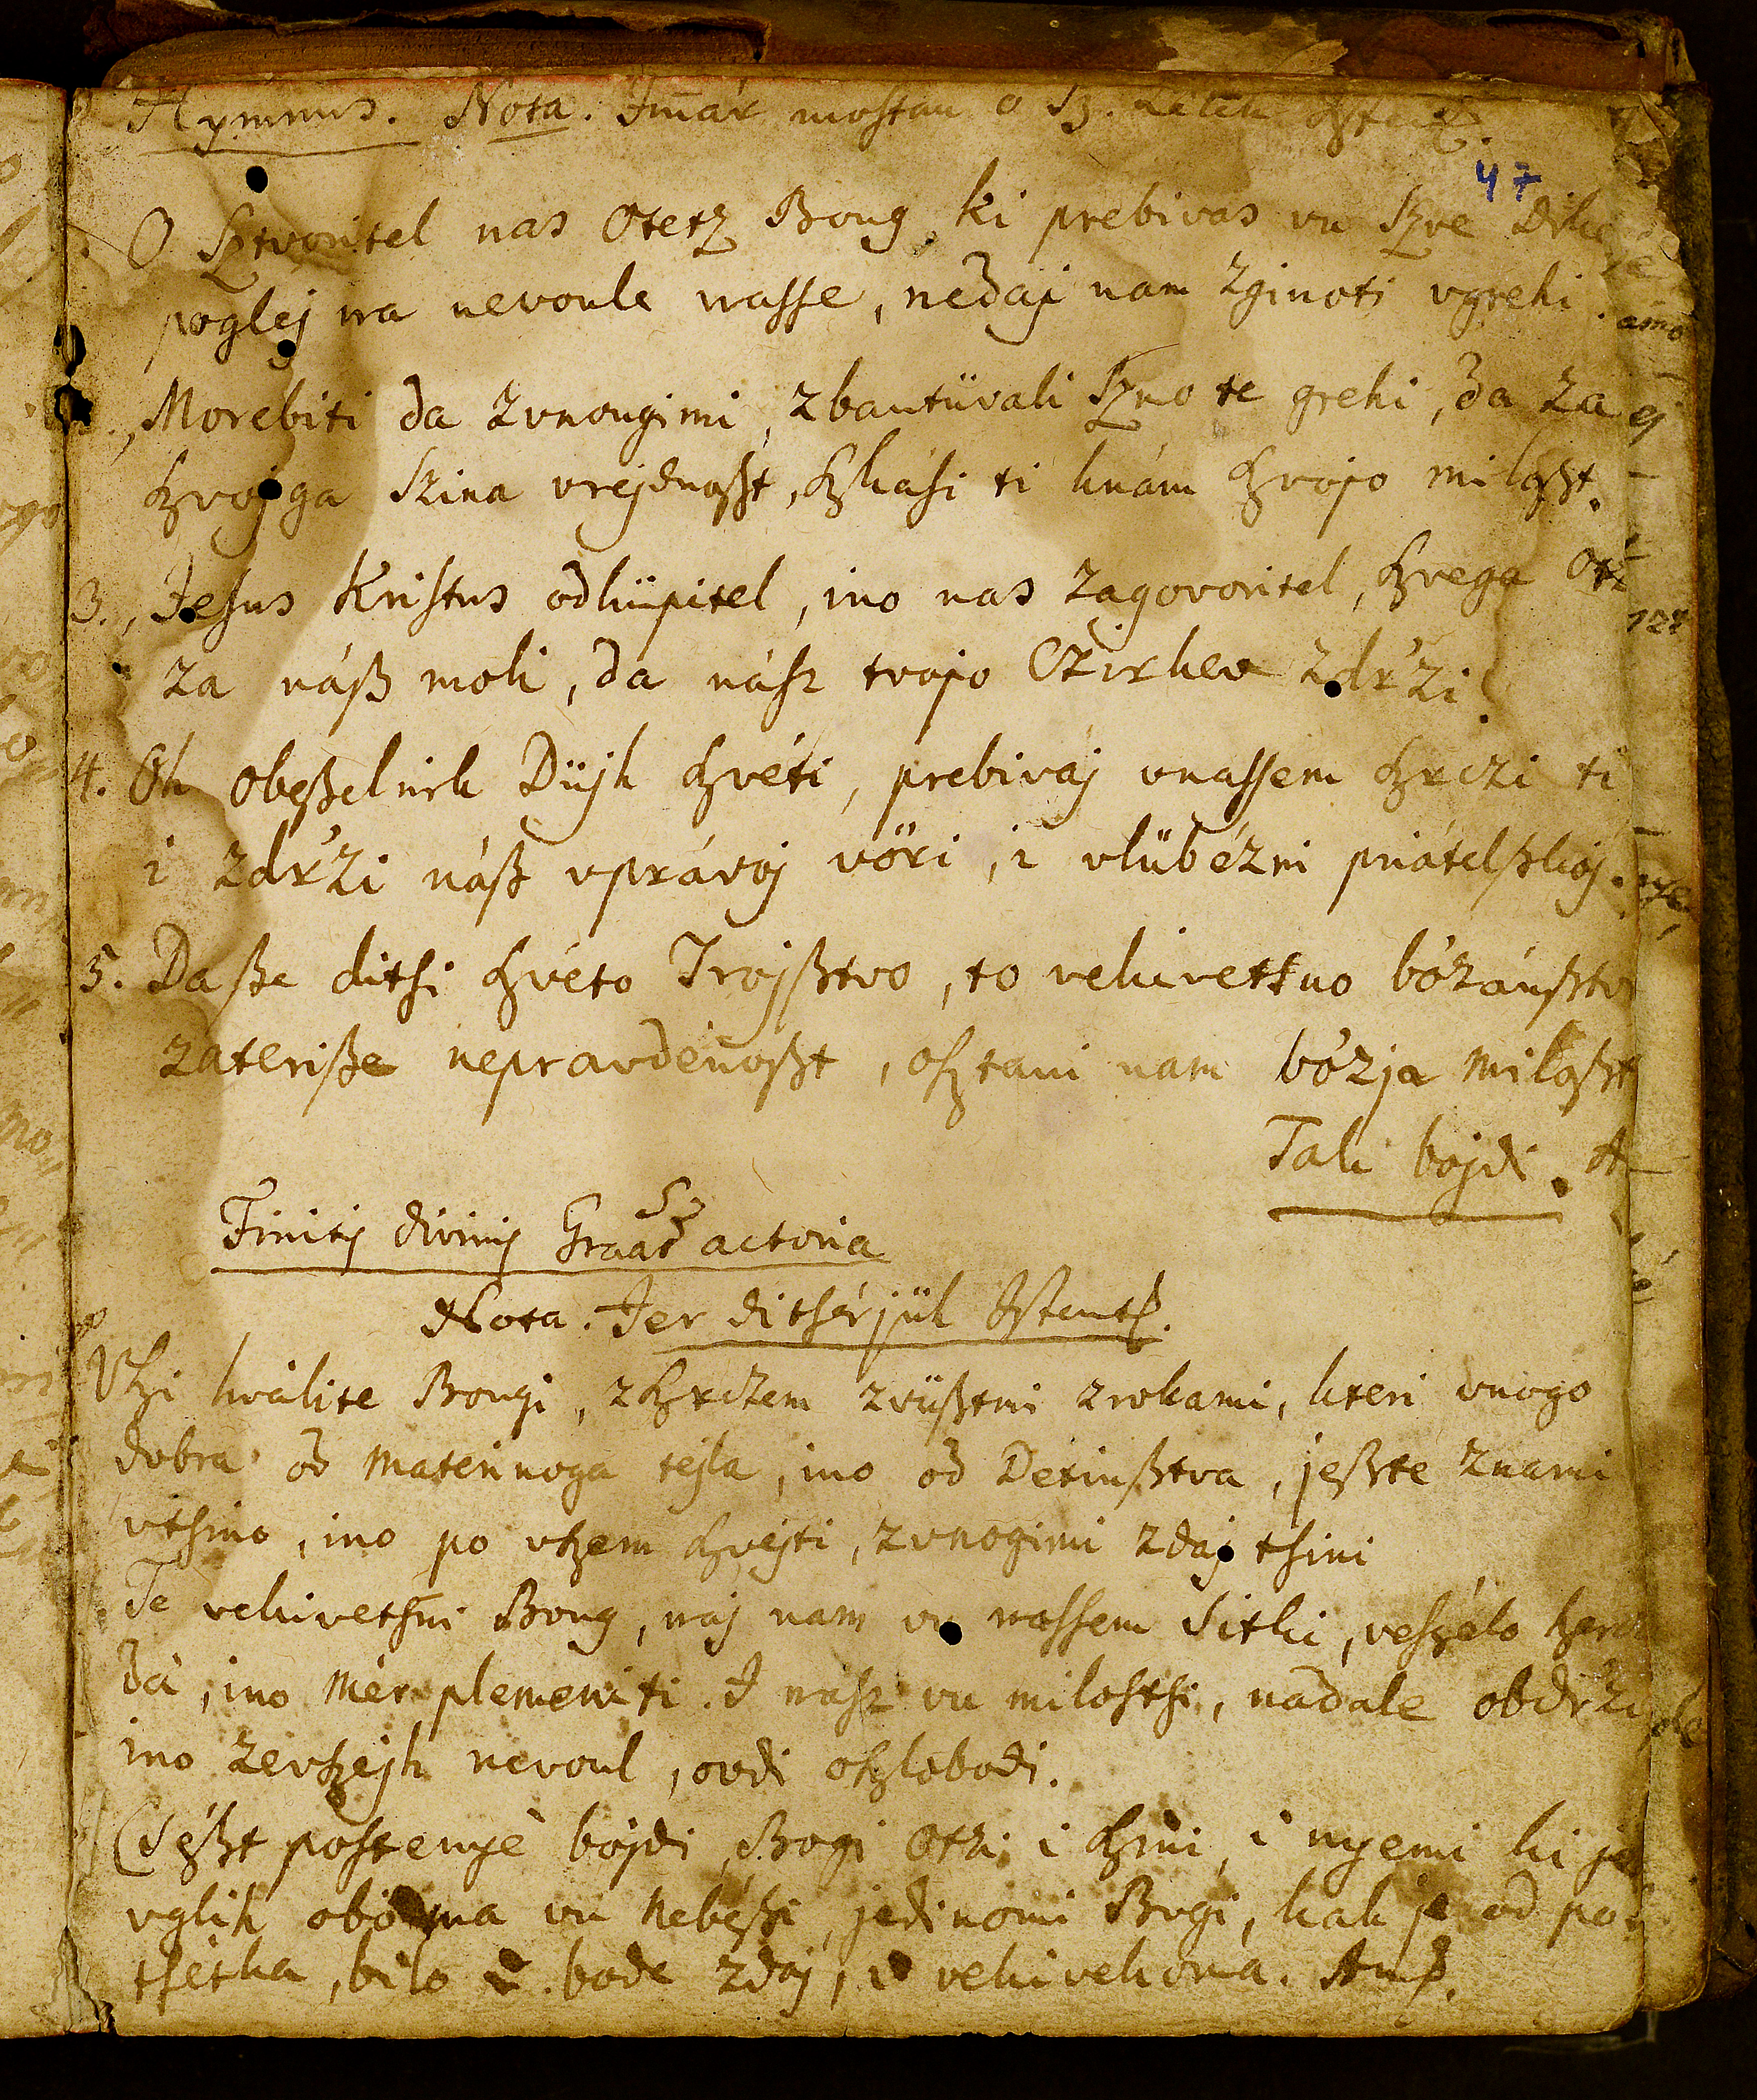 Hymnus. Nota. Imár mostan o Sz.
47
O Sztvoritel nas Otetz Boug, ki prebivas vu Szve
poglej na nevoule nasse, nedaj nam zginoti vgrehi.
Morebiti da zvnougimi, zbantüvali Szmo te grehi, da za
szvojga Szina vrejdnoszt, szkási ti knám szvojo miloszt.
3., Jesus Kristus odküpitel, ino nas zagovoritel, szvega Otz
za náß moli, da násr tvojo Czirkev zdr'zi.
4. Oh obeßelnik Düjh szvéti, prebivaj vnassem szrczi ti
i zdr'zi náß vprávoj vöri, i vlübézni priátelßkoj.
5. Da ße ditsi szvéto Trojßtvo, to vekivetsno bózánßtvo
zateriße nepravdenoßt, osztani nam bózja miloßt
Tak bojdi. A
Finitis divinis Graãr actoria
Nota. Jer ditsérjük Istent.
Vszi hválite Bougi, zszrczem zvüßtmi zrokami, kteri vnogo
dobra od Maternnoga tejla, ino od Detinßtva, jeßte znami
vtsino, ino po vszem szvejti, zvnogimi zdaj tsini
Te vekivetsni Boug, naj nam vu nassem sitki, veszélo
dá, ino mér plemeniti. I násr vu milostsi, nadale obdr'zi
ino zevszejh nevoul, ovdi oszlobodi.
Tseßt postenyé bojdi, Bogi Otzi i szini, i nyemi ki je
vglih obodma vu Nebéßi, jedinomi Bogi, kak je od po
tsétka, bilo i bode zdaj, i vekivekoma. Am.